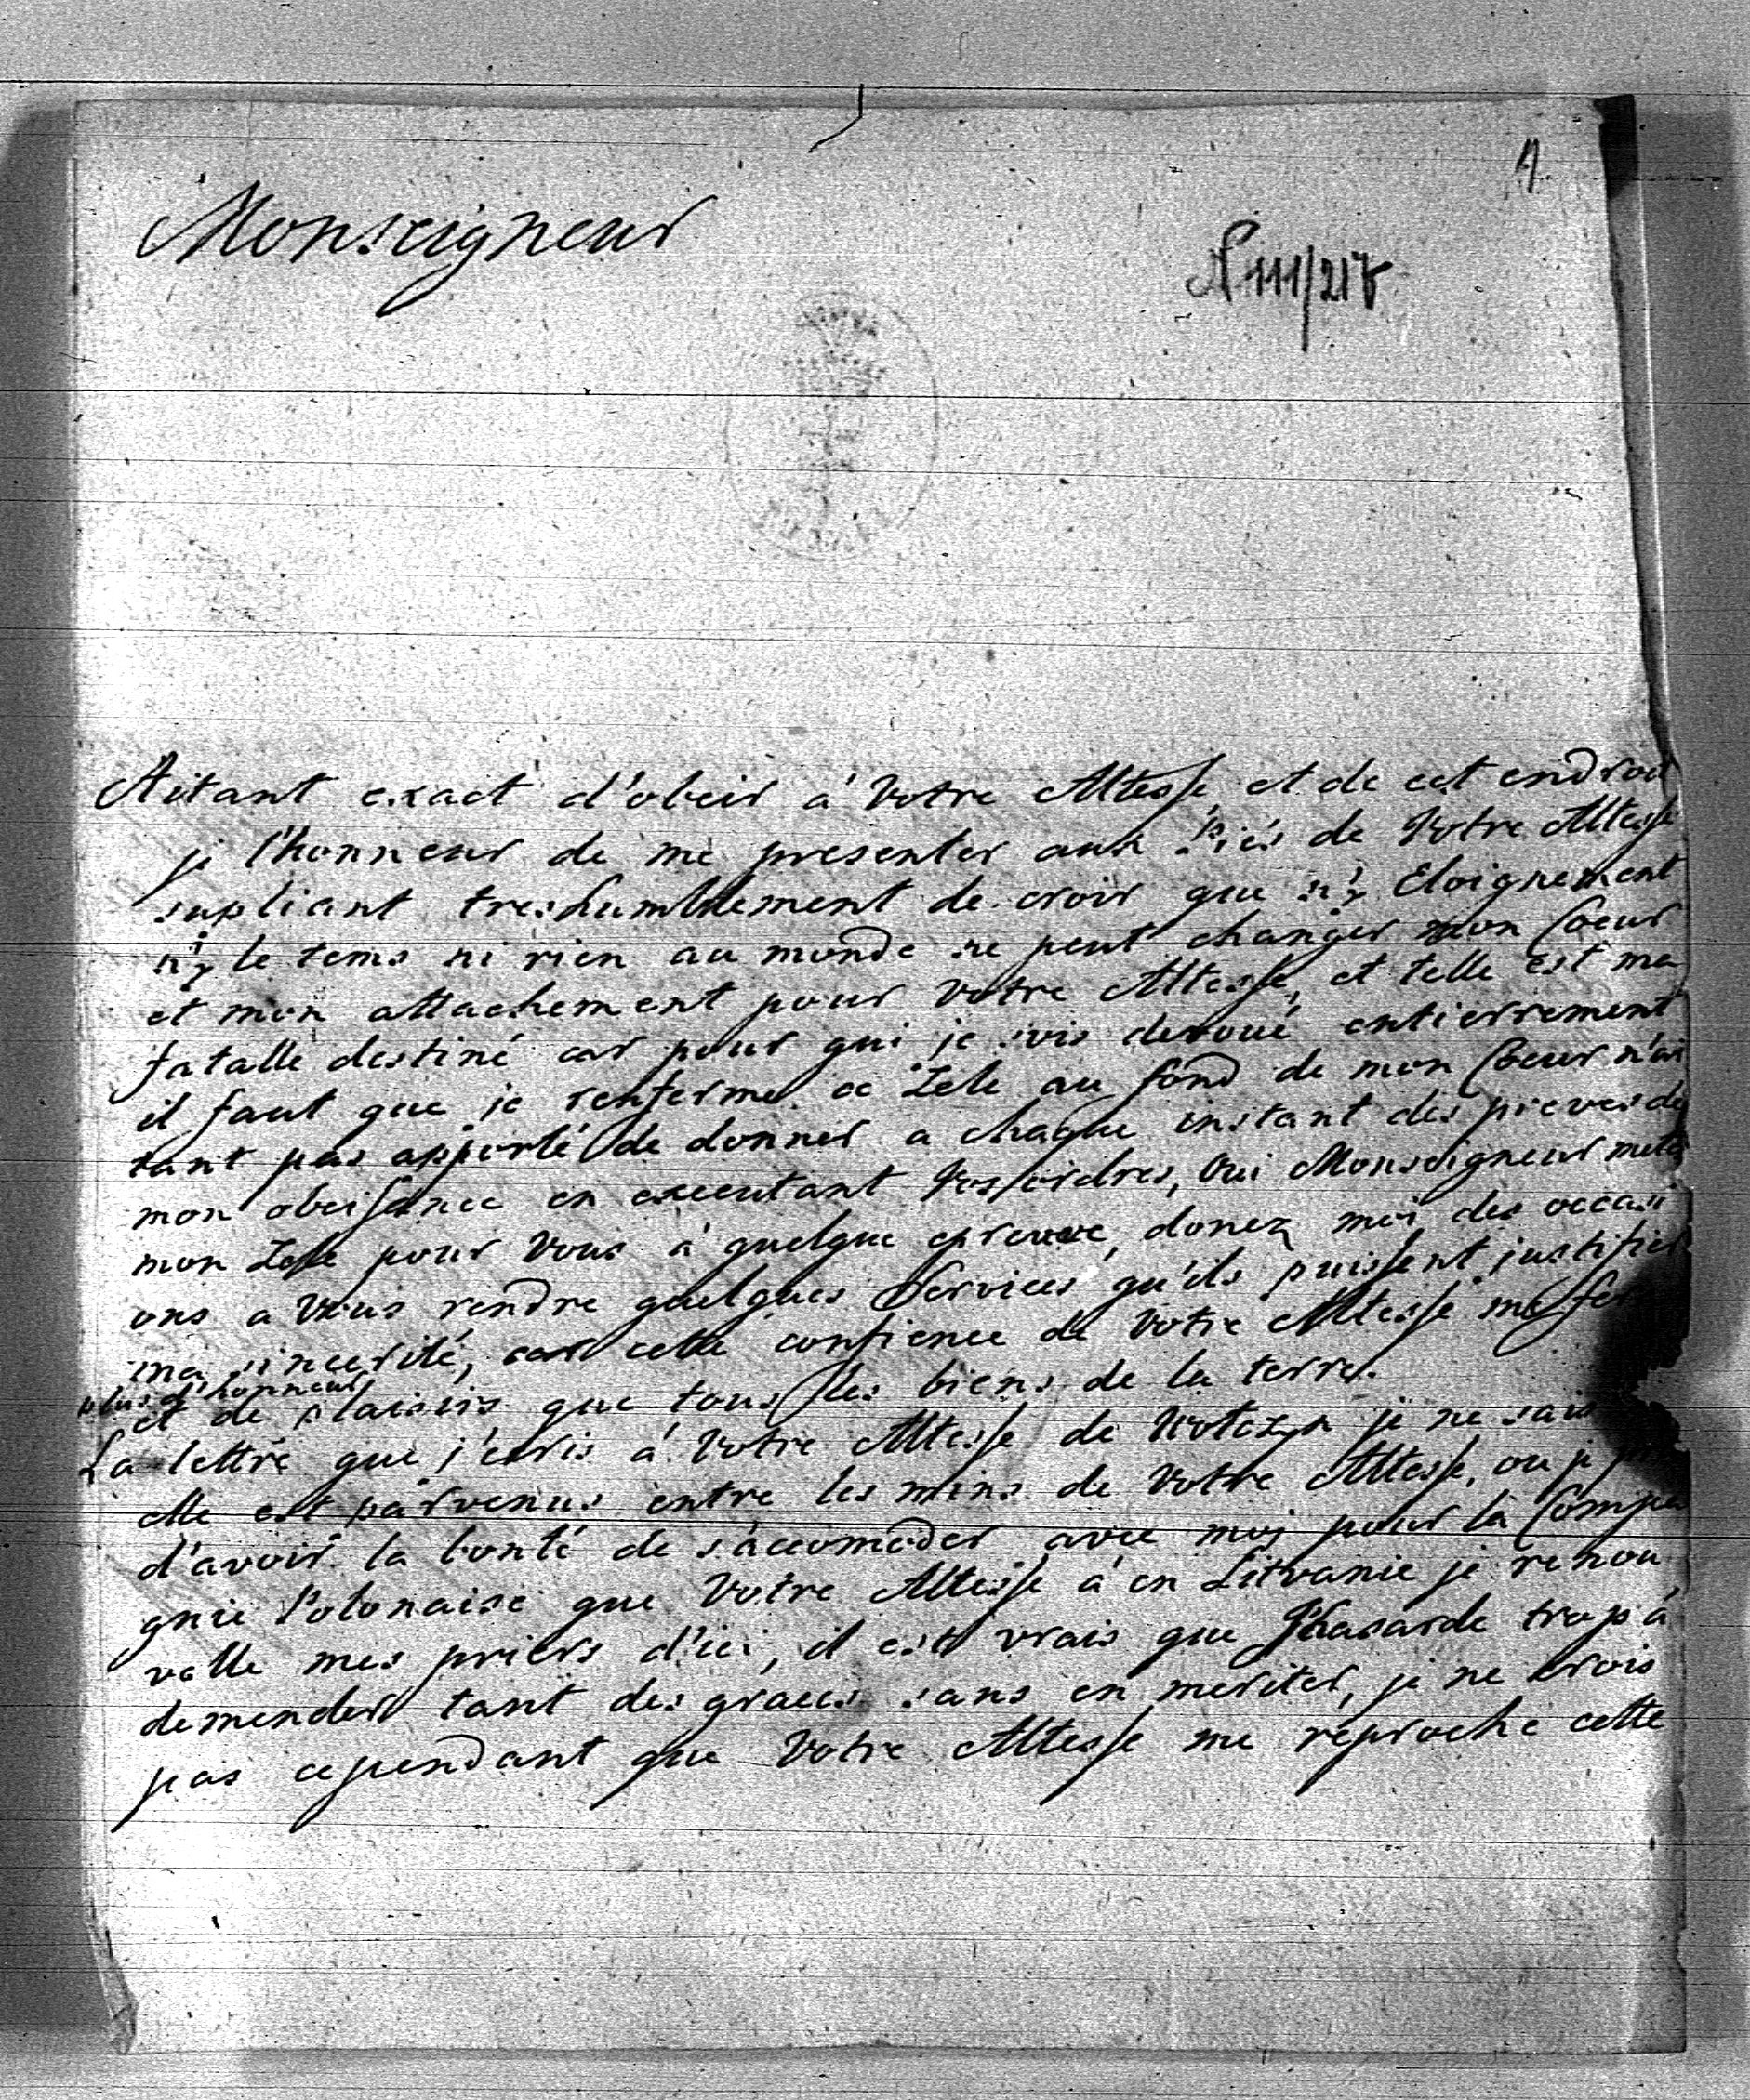 4
Monseigneur
N 111/217
Aitant exact d'obeir á Votre Altesse et de cet endroit
je l'honneur de me presenter aux Piés de Votre Altesse
supliant treshumblement de croir que n'y Eloignement
n'y le tems ni rien au monde ne peut changer mon Coeur
et mon attachement pour Votre Altesse, et telle est ma
fatalle destiné car pour qui je suis devoué entierrement
il faut que je renferme ce Zele au fond de mon Coeur n'ai
tant pas apporté de donner a chaque instant des preves de
mon obeissance en executant Vos ordres, Oui Monseigneur metés
mon Zele pour Vous á quelque epreuve, donez moi des occasi
ons a Vous rendre quelques Services qu'ils puissent justifier
ma sincerité, car cette confience de Votre Altesse me
plus d'honneur
et de plaisirs que tous les biens de la terre.
La lettre que j'ecris á Votre Altesse de je ne sais
elle est parvenus entre les mins de Votre Altesse, ou je
d'avoir la bonté de s'accomoder avec moj pour la Compa
gnie Polonaise que Votre Altesse á en Litvanie je renou
velle mes priers d'ici, il est vrais que J'hasarde trop á
demender tant des graces sans en meriter, je ne crois
pas cependant que Votre Altesse me reproche cette